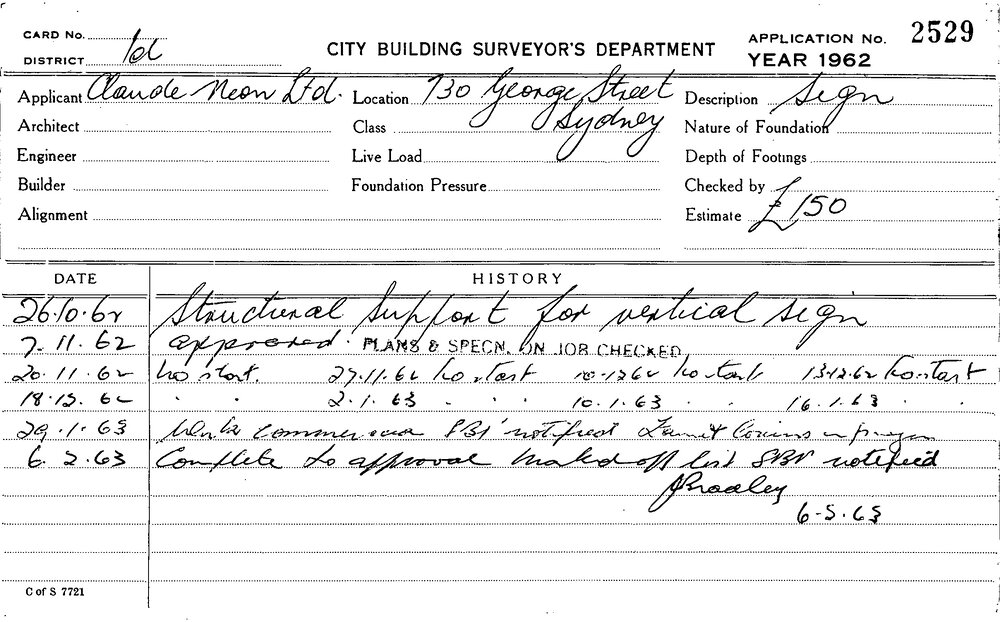 CARD No.
DISTRICT 1d
CITY BUILDING SURVEYOR'S DEPARTMENT
APPLICATION No. 2529
YEAR 1962
Applicant Claude Neon Ltd. Location 730 George Street Description Sign
Architect Class Sydney Nature of Foundation
Engineer Live Load Depth of Footings
Builder Foundation Pressure Checked by
Alignment Estimate £150
DATE HISTORY
26.10.62 Structural Support for vertical sign
7.11.62 approved. PLANS & SPECN. ON JOB CHECKED
20.11.62 No start. 27.11.62 No start 10-12 62 No start 13.12.62 No start
18.12.62 " " 2.1.63 " " 10.1.63 " " 16.1.63 " "
29.1.63 Work commenced SBI notified
6.2.63 Complete to approval marked off list SBI notified
JBradley
6-5.63
C of S 7721